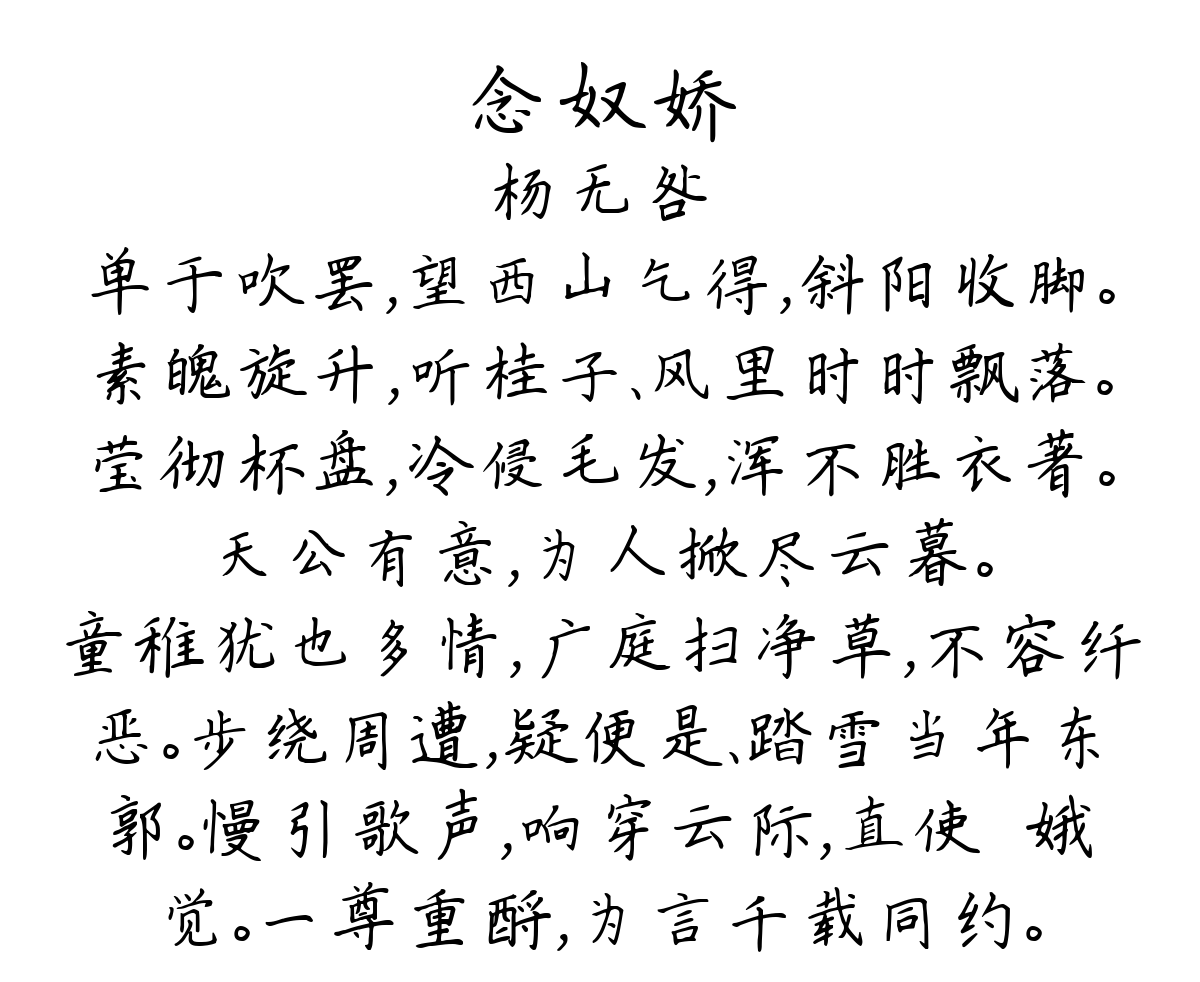 念奴娇
杨无咎
单于吹罢,望西山乞得,斜阳收脚。
素魄旋升,听桂子、风里时时飘落。
莹彻杯盘,冷侵毛发,浑不胜衣著。
天公有意,为人掀尽云暮。
童稚犹也多情,广庭扫净草,不容纤
恶。步绕周遭,疑便是、踏雪当年东
郭。慢引歌声,响穿云际,直使 娥
觉。一尊重酹,为言千载同约。